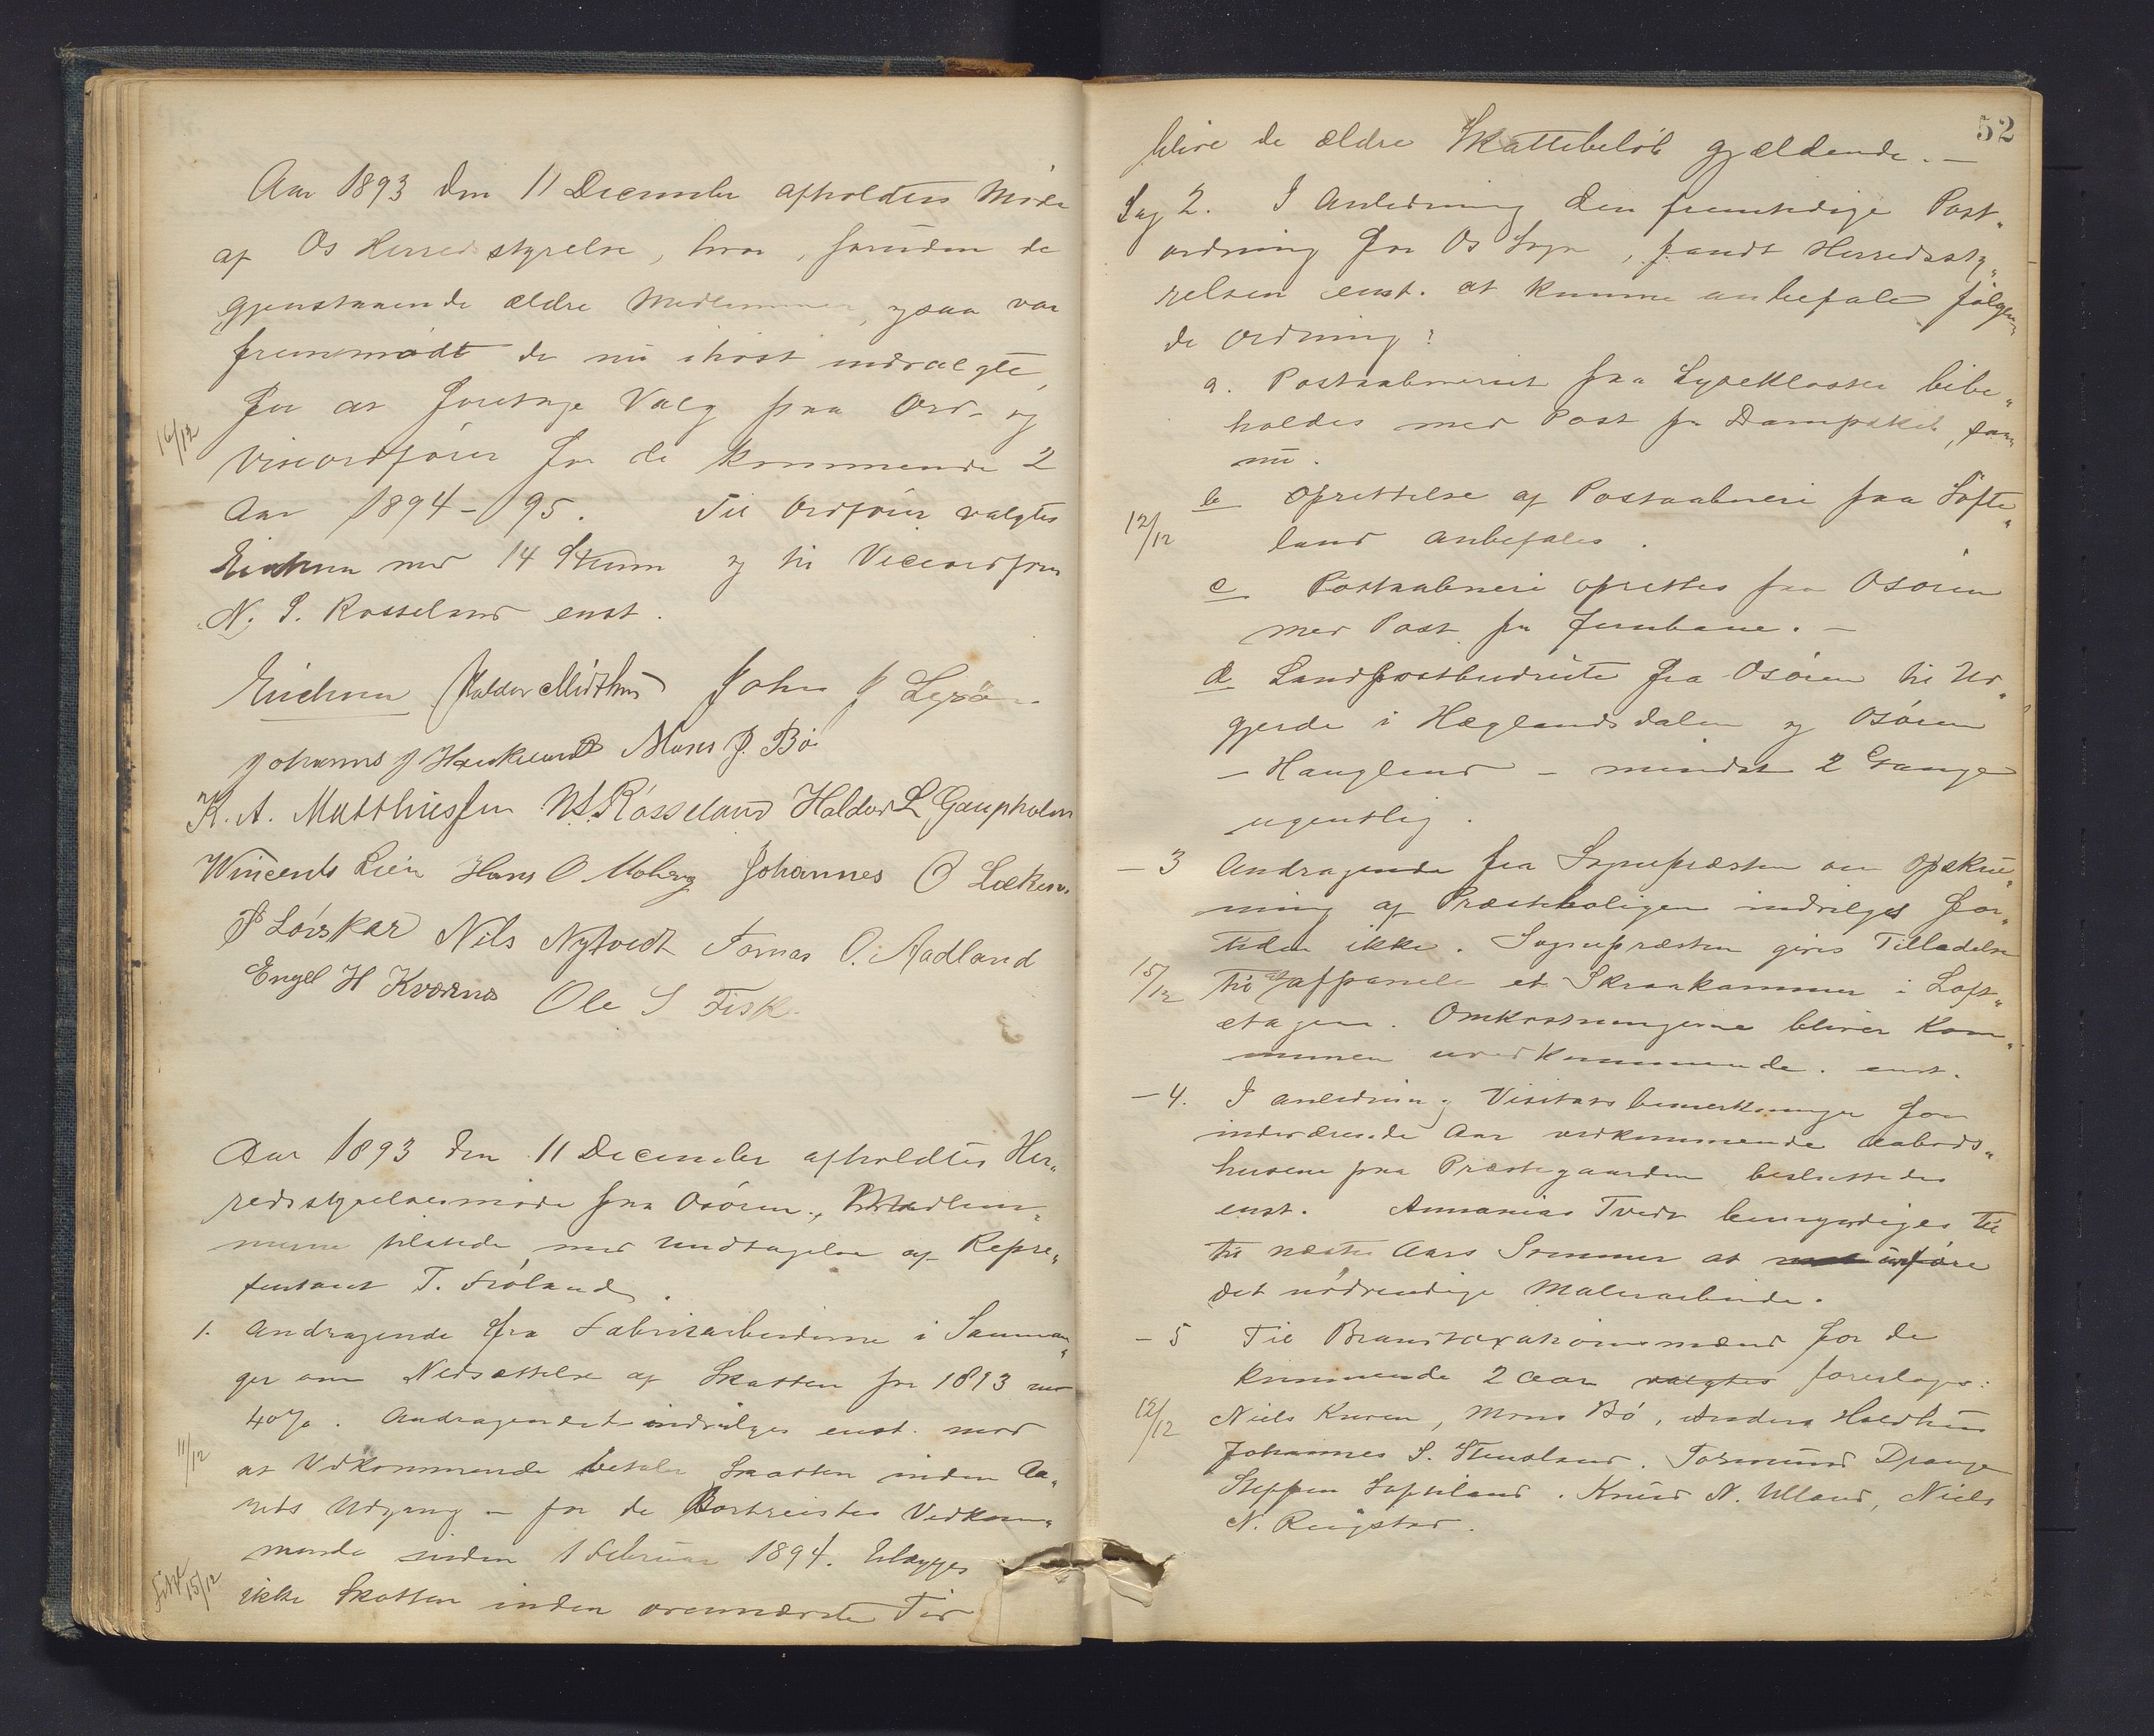 Aar 1893 den 11 December afholdtes Møde
af Os Herredsstyrelse, hvor, foruden de
gjenstaaende ældre Medlemmer, ogsaa var
fremmødt de nu ihøst indvalgte,
for at foretage Valg paa Ord- og
16/12
Viceordfører for de kommende 2
Aar 1894-95. Til Ordfører valgtes
Eichum med 14 Stemm og til Viceordfører
N. S. Rosseland enst.
Halder Midthus John J Lepsø
Johannes J Haukeland Mons J. Bø
K. A. Matthiessen N. S. Røsseland Haldor L Gaupholm
Wincents Lien Hans O Moberg Johannes O Lækven
Løvskar Nils Nytvedt Tomas O. Aadland
Engel H Kværnes Ole S Fisk
Aar 1893 den 11 December afholdtes Her„
redsstyrelsesmøde paa Osøren, Medlem„
merne tilstede med Undtagelse af Repre„
sentant T. Frøland.
1. Andragende fra Fabrikarbeiderne i Samnan„
ger om Nedsættelse af Skatten for 1893 med
40%. Andragendet indvilges enst. mod
11/12
at Vedkommende betaler Skatten inden Aa„
rets Udgang – for de Bortreistes Vedkom„
mende inden 1 Februar 1894. Erlægges
15/12
ikke Skatten inden ovennævnte Tid
52
blive de ældre Skattebeløb gjældende. –
Sag 2. I Anledning den fremtidige Post„
ordning for Os Sogn, fandt Herredssty„
relsen enst. at kunne anbefale følgen„
de Ordning:
a. Postaabneriet paa Lysekloster bibe„
holdes med Post pr Dampskib, som
nu.
b Oprettelse af Postaabneri paa Søfte„
12/12
land anbefales.
c Postaabneri oprettes paa Osøren
med Post pr Jernbane. –
d Landpostbudruite fra Osøren til Ud„
gjerde i Hæglandsdalen og Osøren
– Haugland – mindst 2 Gange
ugentlig.
– 3 Andragende fra Sognepræsten om Opskri„
ning af Præsteboligen indvilges for„
tiden ikke. Sognepræsten gives Tilladelse
15/12
til at afpanele et Skraakammer i Loft„
etagen. Omkostningerne bliver Kom„
munen uvedkommende. enst.
– 4. I anledning Visitatsbemerkninger for
indeværende Aar vedkommende Aabods„
husene paa Præstegaarden besluttedes
enst. Annanias Tvedt bemyndiges til
til næste Aars Sommer at udføre
det nødvendige Malerarbeide.
– 5 Til Brandtaxationsmænd for de
kommende 2 Aar valgtes foreslages:
12/12
Niels Kuven, Mons Bø, Anders Haldhus
Johannes S. Stensland. Tormund Drange
Steffen Søfteland. Knud N. Ulland, Niels
N. Røigstad.